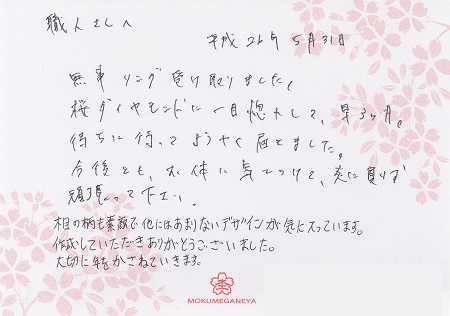 職人さんへ
平成26年5月31日
無事リング受け取りました。
桜ダイヤモンドに一目惚れして、早3ヶ月。
待ちに待ってようやく届きました。
今後とも、お体に気をつけて、炎に負けず
頑張って下さい。
木目の柄も素敵で他にはあまりないデザインが気に入っています。
作成していただきありがとうございました。
大切に年をかさねていきます。
MOKUMEGANEYA